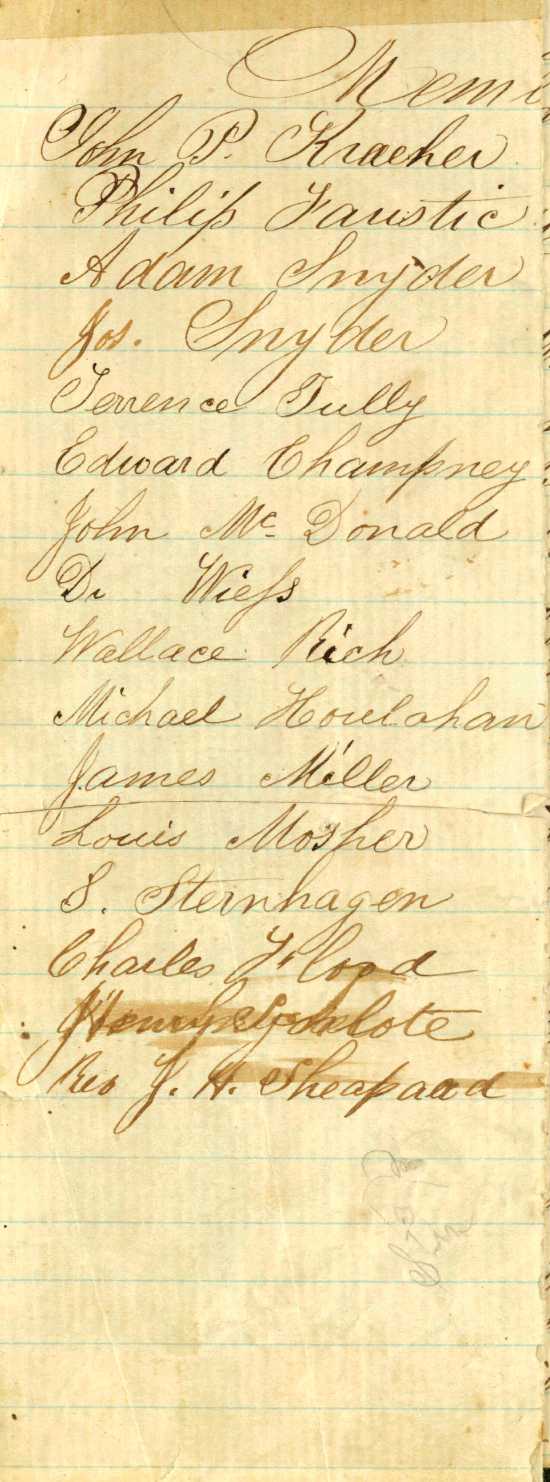 Mem
John P. Kraeher
Philip Faustic
Adam Snyder
Jos. Snyder
Terrence Tully
Edward Champney
John Mc Donald
Dr Wiess
Wallace Rich
Michael Houlahan
James Miller
Louis Mosher
S. Sternhagen
Charles Flood
Rev J. H. Sheapaad